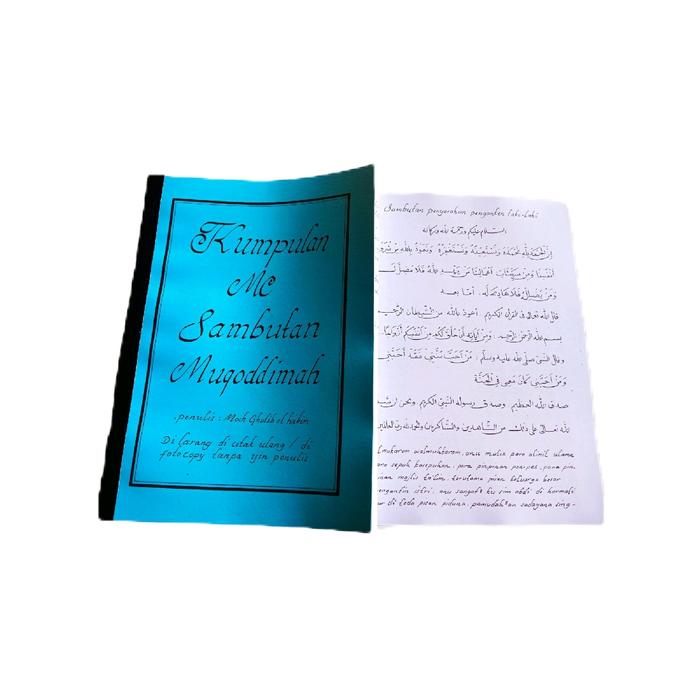 Kumpulan
MC
Sambutan
Muqoddimah
penulis : Moch Gholib el hakim
Di larang di cetak ulang / di
fotocopy tanpa ijin penulis
Sambutan penyerahan penganten laki-laki
السلام عليكم ورحمة الله وبركاته
إن الحمد لله نحمده ونستعينه ونستغفره ونعوذ بالله من شرور
أنفسنا ومن سيئات أعمالنا من يهد الله فلا مضل له
ومن يضلل فلا هادي له. أما بعد
قال الله تعالى في القرآن الكريم. أعوذ بالله من الشيطان الرجيم
بسم الله الرحمن الرحيم. ومن آياته أن خلق لكم من أنفسكم أزواجا
وقال النبي صلى الله عليه وسلم : من أحب سنتي فقد أحبني
ومن أحبني كان معي في الجنة
صدق الله العظيم وصدق رسوله النبي الكريم ونحن
الله تعالى على ذلك من الشاهدين والشاكرين والحمد لله رب العالمين
almukarom walmuhtarom, anu mulia para alimil ulama
para sepuh kasepuhan, para pimpinan ponpes, para pim-
majlis ta'lim, terutama pisan keluarga besar
penganten istri, anu sangat ku sim abdi di hormati
di beda pisan piduna, pamudah²an sadayana sing-